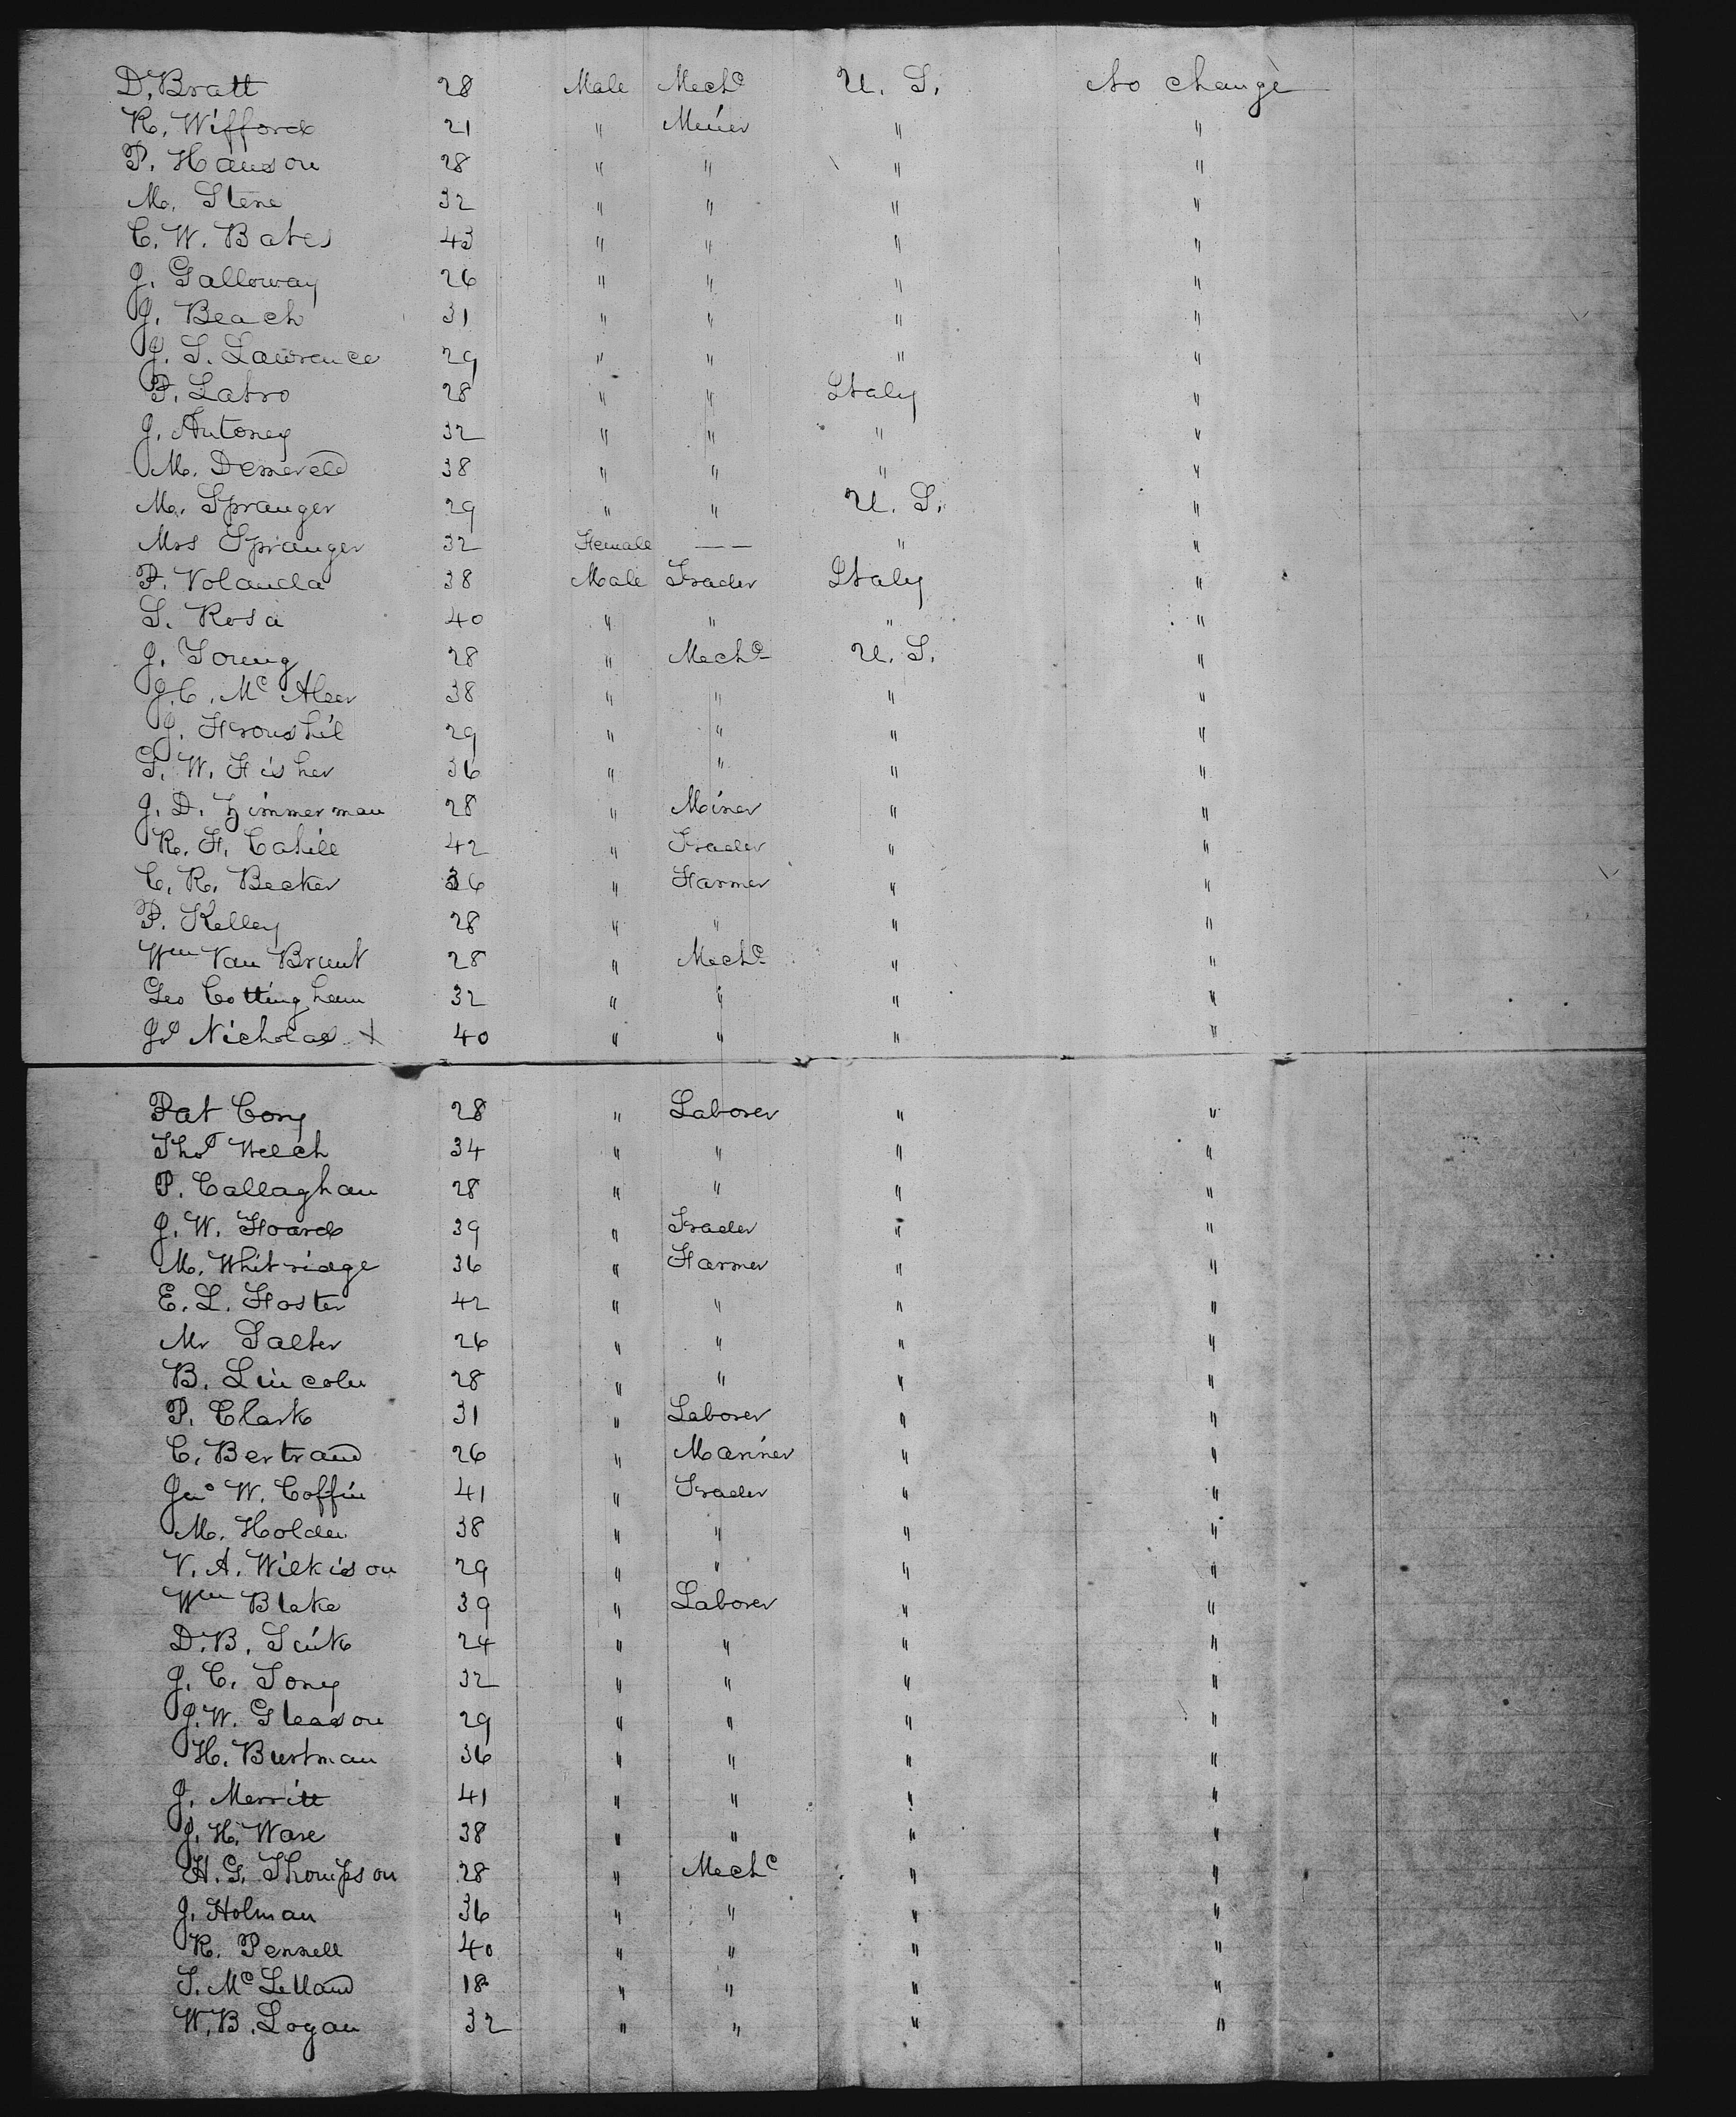 D. Bratt 28 Male Mechc U. S. No change
R. Wifford 21 " Miner " "
P. Hanson 28 " " " "
M. Stene 32 " " " "
C. W. Bates 43 " " " "
J. Galloway 26 " " " "
J. Beach 31 " " " "
J. S. Lawrence 29 " " " "
P. Latro 28 " " Italy "
J. Antoney 32 " " " "
M. 38 " " " "
M. Spranger 29 " " U. S. "
Mrs Spranger 32 Female — — " "
P. Volanda 38 Male Trader Italy "
S. Rosa 40 " " " "
J. Young 28 " Mechc U. S. "
J. C. Mc Aleer 38 " " " "
J. 29 " " " "
G. W. Fisher 36 " " " "
J. D. Zimmerman 28 " Miner " "
R. F. Cahill 42 " Trader " "
C. R. Becker 36 " Farmer " "
P. Kelley 28 " " " "
Wm Van Brunt 28 " Mechc " "
Geo Cottingham 32 " " " "
Js Nicholas + 40 " " " "
Pat Cony 28 " Laborer " "
Thos Welch 34 " " " "
P. Callaghan 28 " " " "
J. W. Hoard 39 " Trader " "
M. Whitridge 36 " Farmer " "
E. L. Foster 42 " " " "
Mr Salter 26 " " " "
B. Lincoln 28 " " " "
P. Clark 31 " Laborer " "
C. Bertrand 26 " Mariner " "
Jno W. Coffin 41 " Trader " "
M. Holden 38 " " " "
V. A. Wilkison 29 " " " "
Wm Blake 39 " Laborer " "
D. B. 24 " " " "
J. C. Tony 32 " " " "
J. W. Gleason 29 " " " "
H. Bustman 36 " " " "
J. Merritt 41 " " " "
J. H. Ware 38 " " " "
H. G. Thompson 28 " Mechc " "
J. Holman 36 " " " "
R. Pennell 40 " " " "
T. Mc Lelland 18 " " " "
W. B. Logan 32 " " " "